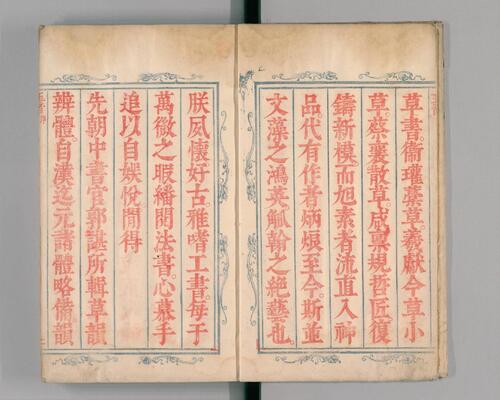 草書。衞瓘藁草。羲獻今草。小
草。蔡襄散草。咸稟規哲匠。復
鑄新模。而旭素者流。直入神
品。代有作者。炳烺至今。斯並
文藻之鴻英。觚翰之絕藝也。
朕夙懷好古。雅嗜工書。每于
萬幾之暇。繙閱法書。心慕手
追。以自娛悅。閒得
先朝中書官郭諶所輯草韻
辨體。自漢迄元。諸體略備。韻